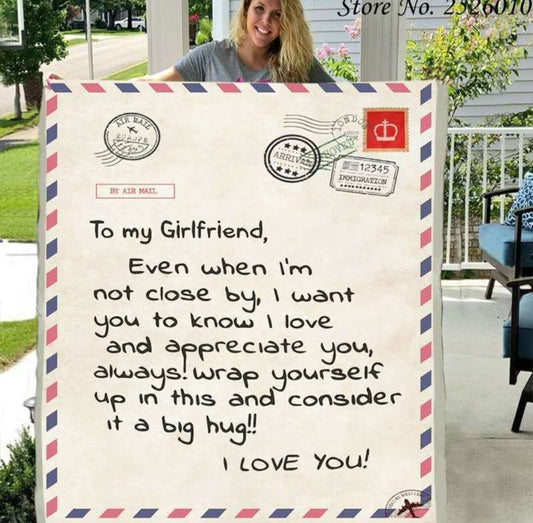 Store No. 2326010
AIR MAIL
EUROPE
LONDON
ARRIVAL
12345
IMMIGRATION
BY AIR MAIL
To my Girlfriend,
Even when I'm
not close by, I want
you to know I love
and appreciate you,
always! wrap yourself
up in this and consider
it a big hug!!
I LOVE YOU!